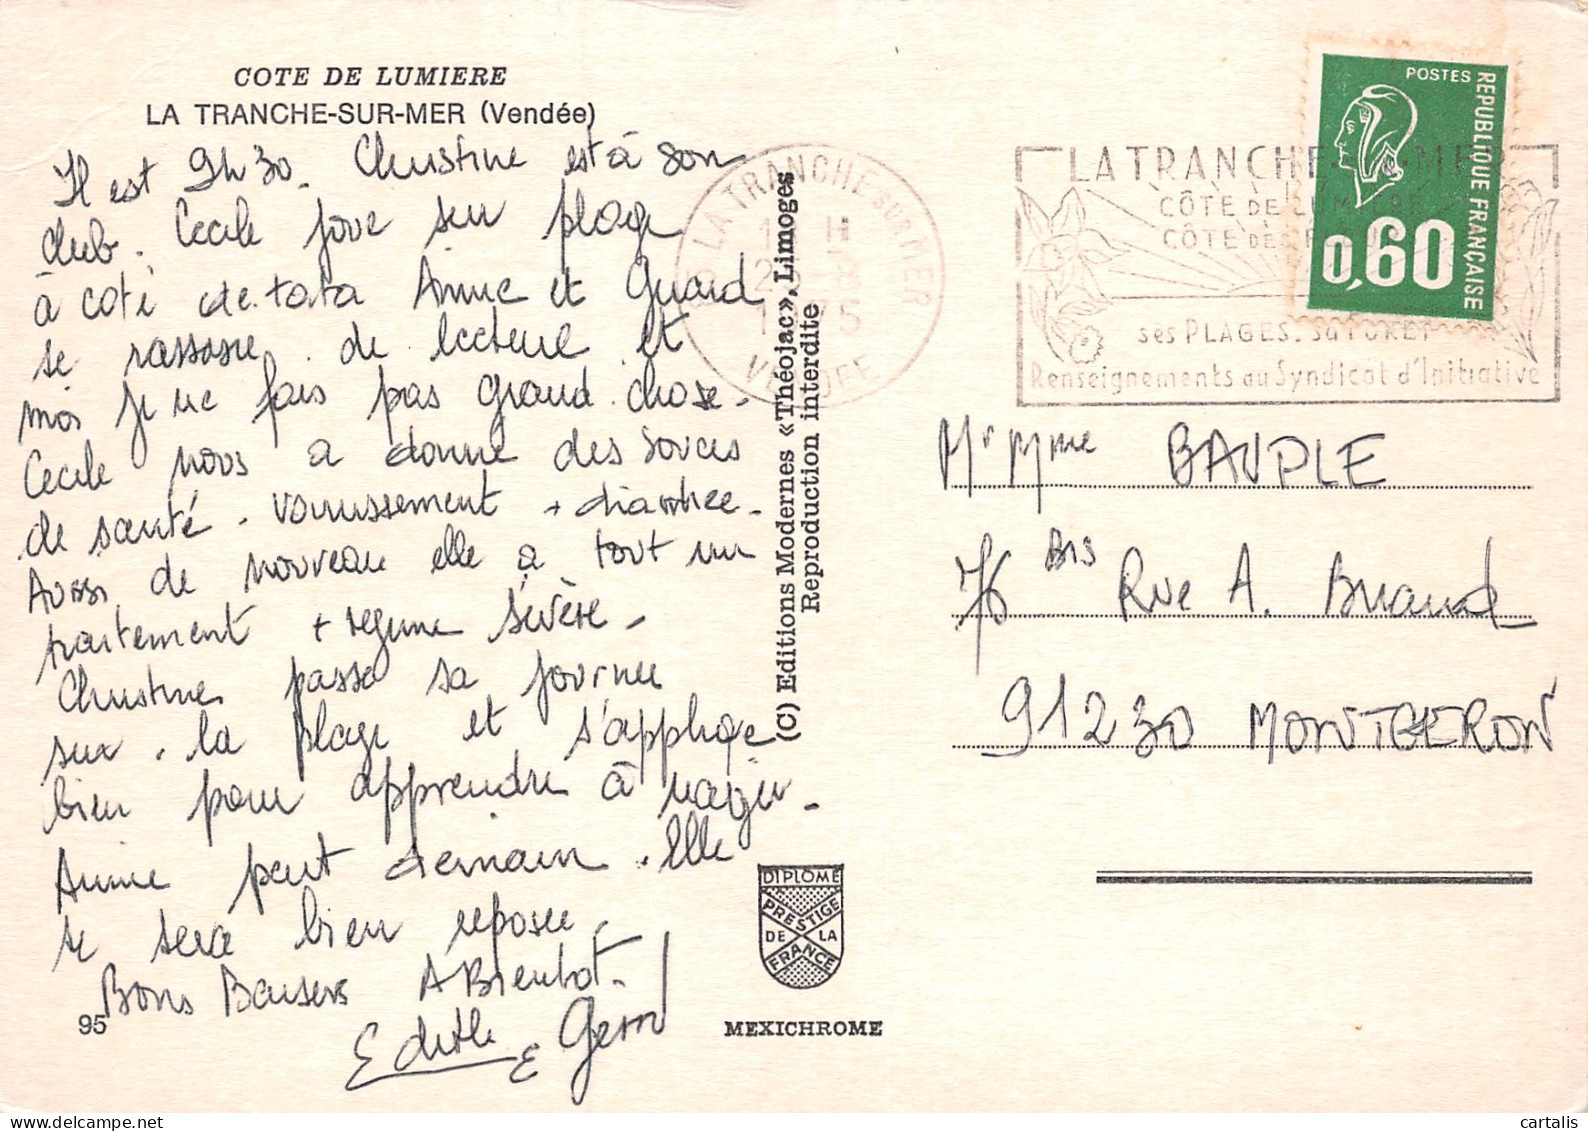 COTE DE LUMIERE
LA TRANCHE-SUR-MER (Vendée)
Il est 9h30. Christine est à son
club. Cecile joue sur plage
à coté de tata Annie et Gerard
se rassasie de lecture et
moi je ne fais pas grand chose.
Cecile nous a donné des soucis
de santé. vomissement + diarrhee.
Aussi de nouveau elle a tout un
traitement + regime sévère.
Christine passe sa journee
sur la plage et s'applique
bien pour apprendre à nager.
Annie part demain. Elle
se sera bien reposee.
Bons Baisers A Bientot.
Edith & Gerard
95
(C) Editions Modernes «Théojac», Limoges
Reproduction interdite
DIPLOME
PRESTIGE
DE LA
FRANCE
MEXICHROME
LA TRANCHE SUR MER
VENDEE
LA TRANCHE
MER
CÔTE DE LUMIERE
CÔTE DES
ses PLAGES. sa FORET
Renseignements au Syndicat d'Initiative
POSTES
REPUBLIQUE FRANÇAISE
0,60
Mr Mme BAUPLE
76 Bis Rue A. Briand
91230 MONTGERON
cartalis